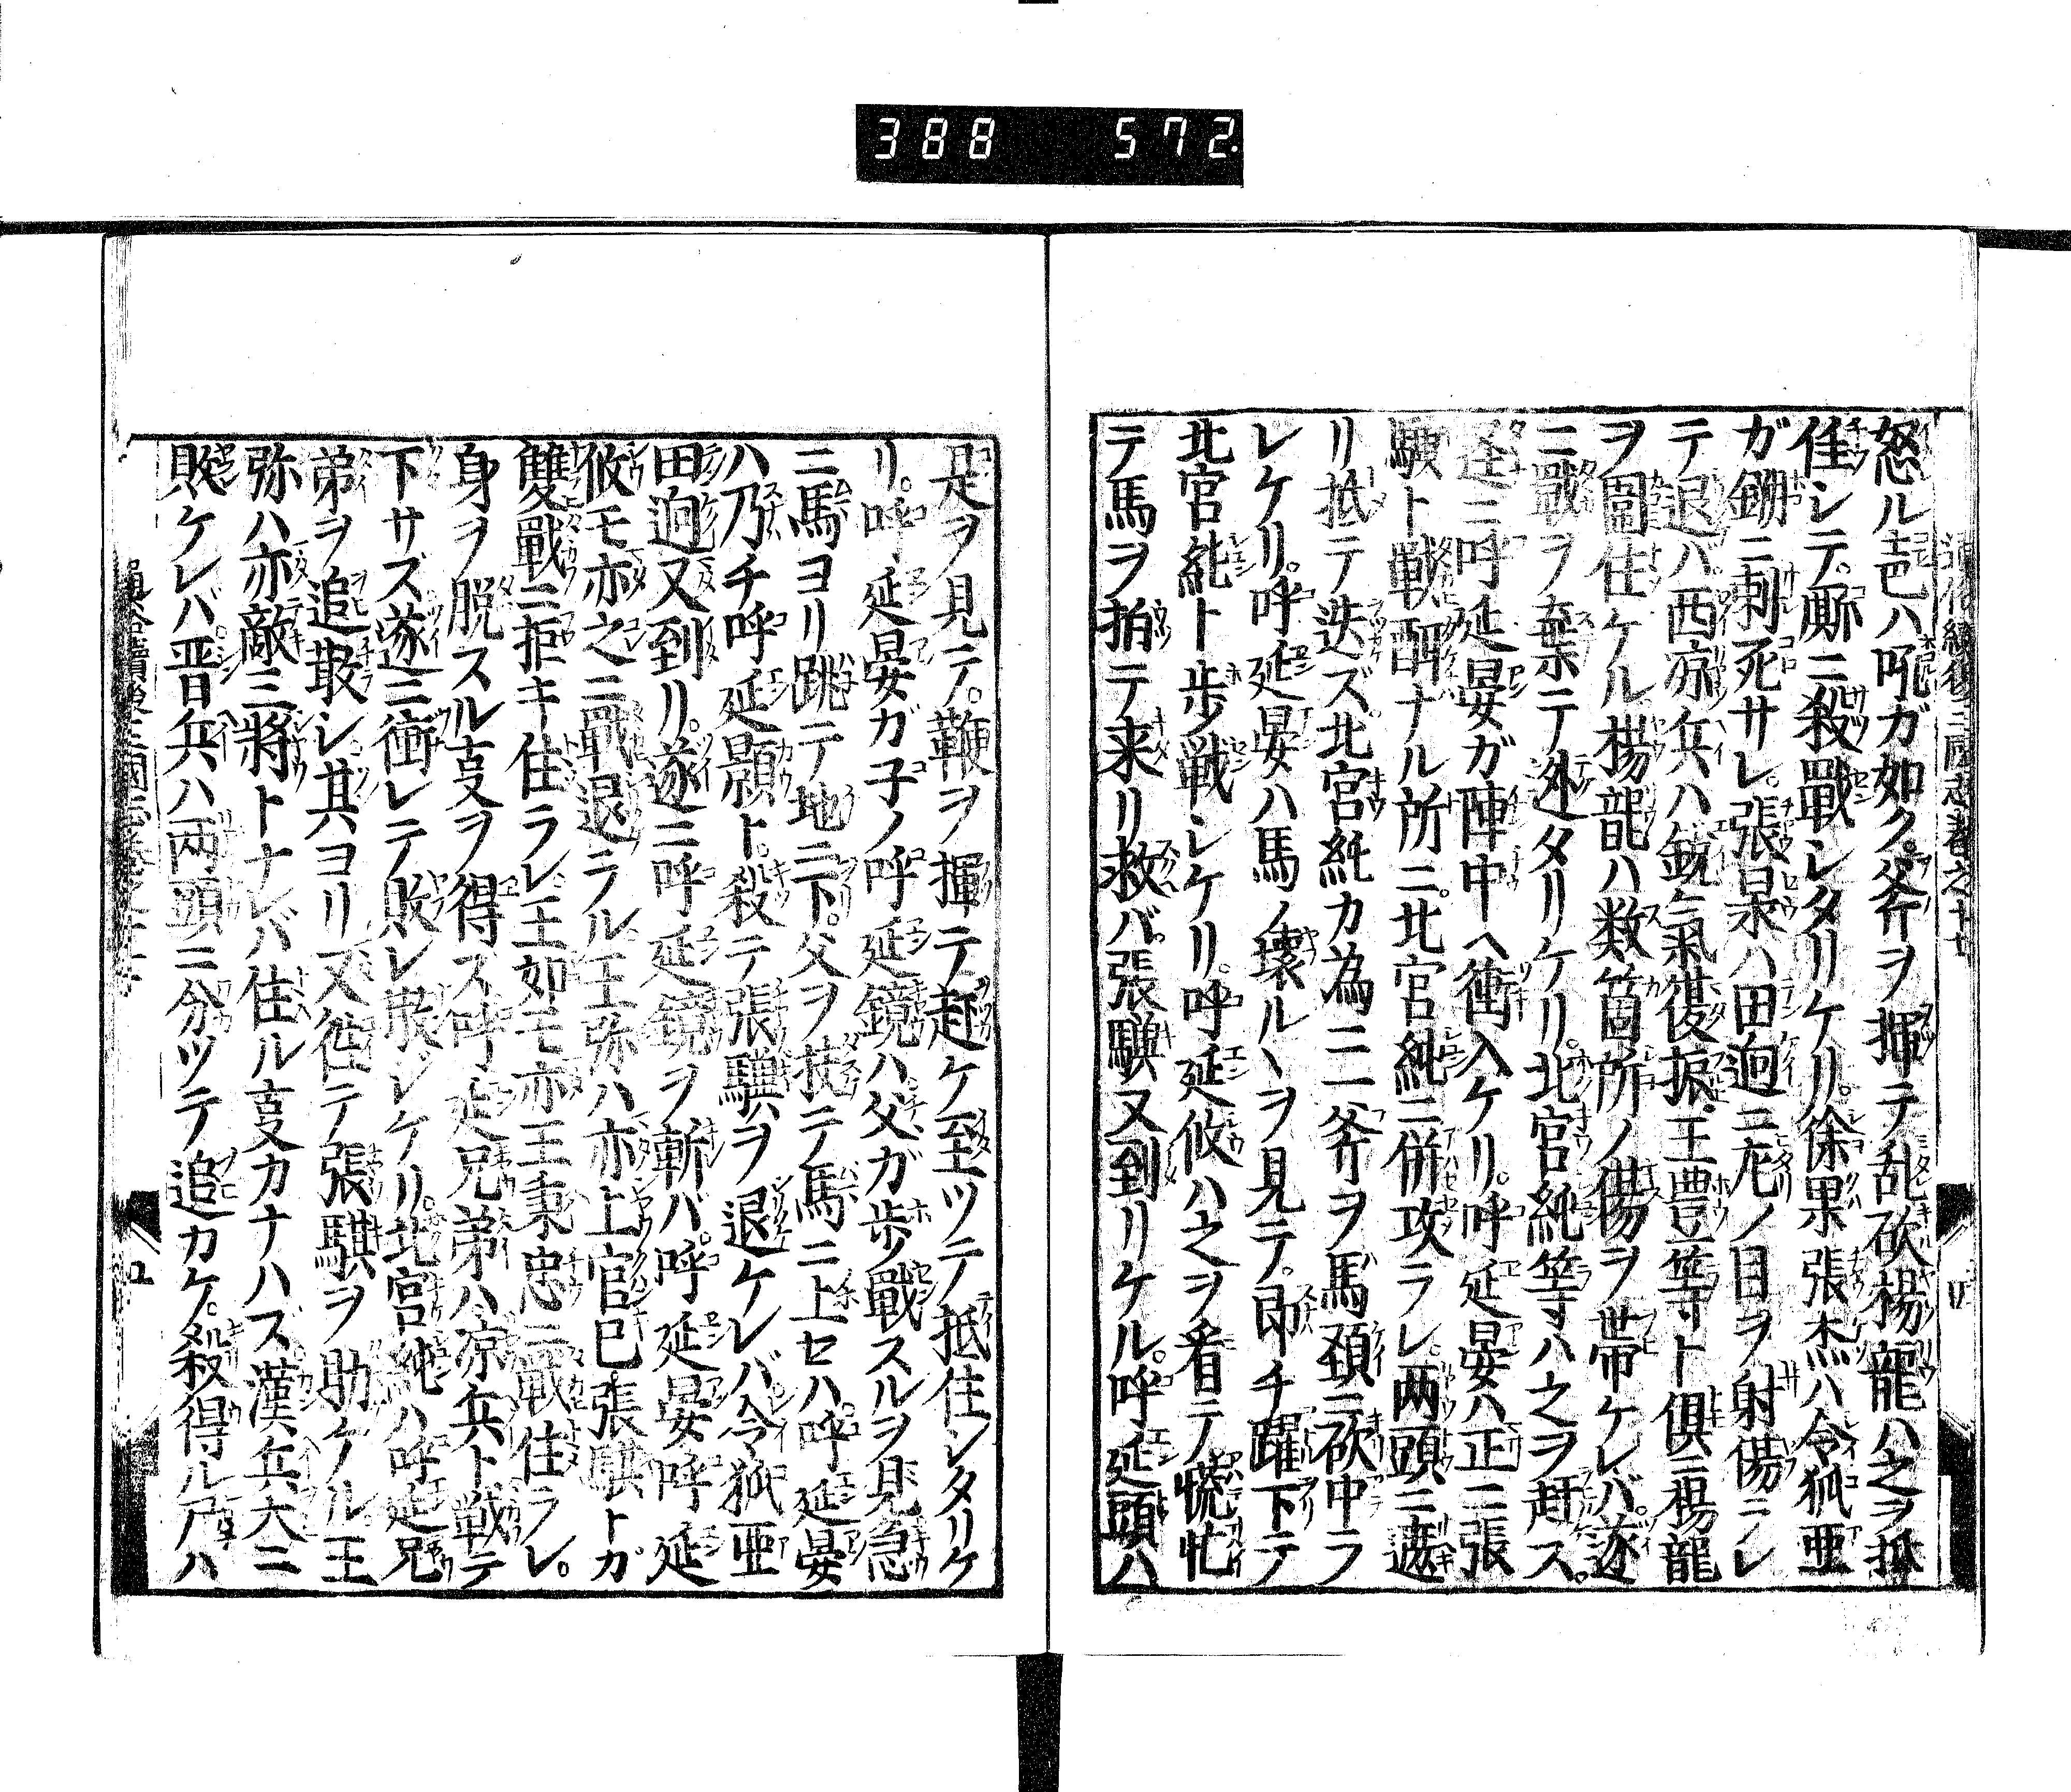 388 572.
通俗續後三國志巻之十七
怒ル㐂巴ハ吼ガ如ク。斧ヲ揮テ乱砍楊龍ハ之ヲ抵
住シテ。厮ニ殺戰シタリケリ。徐果張杰ハ令狐亜
ガ鎙ニ刺死サレ。張杲ハ田逈ニ左ノ目ヲ射傷ラレ
テ退バ西凉兵ハ鋭氣復振。王豊等ト倶ニ楊龍
ヲ圍住ケル楊龍ハ数箇所ノ傷ヲ帯ケレバ。遂
ニ戰ヲ棄テ迯タリケリ。北宮純等ハ之ヲ赶ス。
逕ニ呼延晏ガ陣中ヘ衝入ケリ。呼延晏ハ正ニ張
駚ト戰酣ナル所ニ。北宮純ニ併攻ラレ。両頭ニ遮
リ抵テ迭ズ北宮純カ為ニ一斧ヲ馬頚ニ砍中ラ
レケリ。呼延晏ハ馬ノ壊ルヽヲ見テ。即チ躍下テ
北宮純ト歩戦シケリ。呼延攸ハ之ヲ看テ慌忙
テ馬ヲ拍テ来リ救バ。張騏又到リケル。呼延顥ハ
是ヲ見テ。鞭ヲ揮テ赶ケ至ツテ抵住シタリケ
リ。呼延晏ガ子ノ呼延鏡ハ父ガ歩戰スルヲ見急
ニ馬ヨリ跳テ地ニ下。父ヲ技テ馬ニ上セハ呼延晏
ハ乃チ呼延顥ト。殺テ張騏ヲ退ケレバ令狐亜
田逈又到リ。遂ニ呼延鏡ヲ斬バ。呼延晏呼延
攸モ亦之ニ戰退ラル王弥ハ亦上官巳張騏トガ
雙戰ニ拒キ住ラレ王如モ亦王秉忠ニ戰住ラレ。
身ヲ脱スル㕝ヲ得ス呼延兄弟ハ凉兵ト戦テ
下サズ遂ニ衝レテ敗レ散ジケリ。北宮純ハ呼延兄
弟ヲ追散シ。其ヨリ又徃テ張騏ヲ助ケル王
弥ハ亦敵三將トナレバ住ル㕝カナハズ漢兵大ニ
敗ケレバ晋兵ハ両頭ニ分ツテ追カケ。殺得ル尸ハ
通俗續後三國志巻之十七